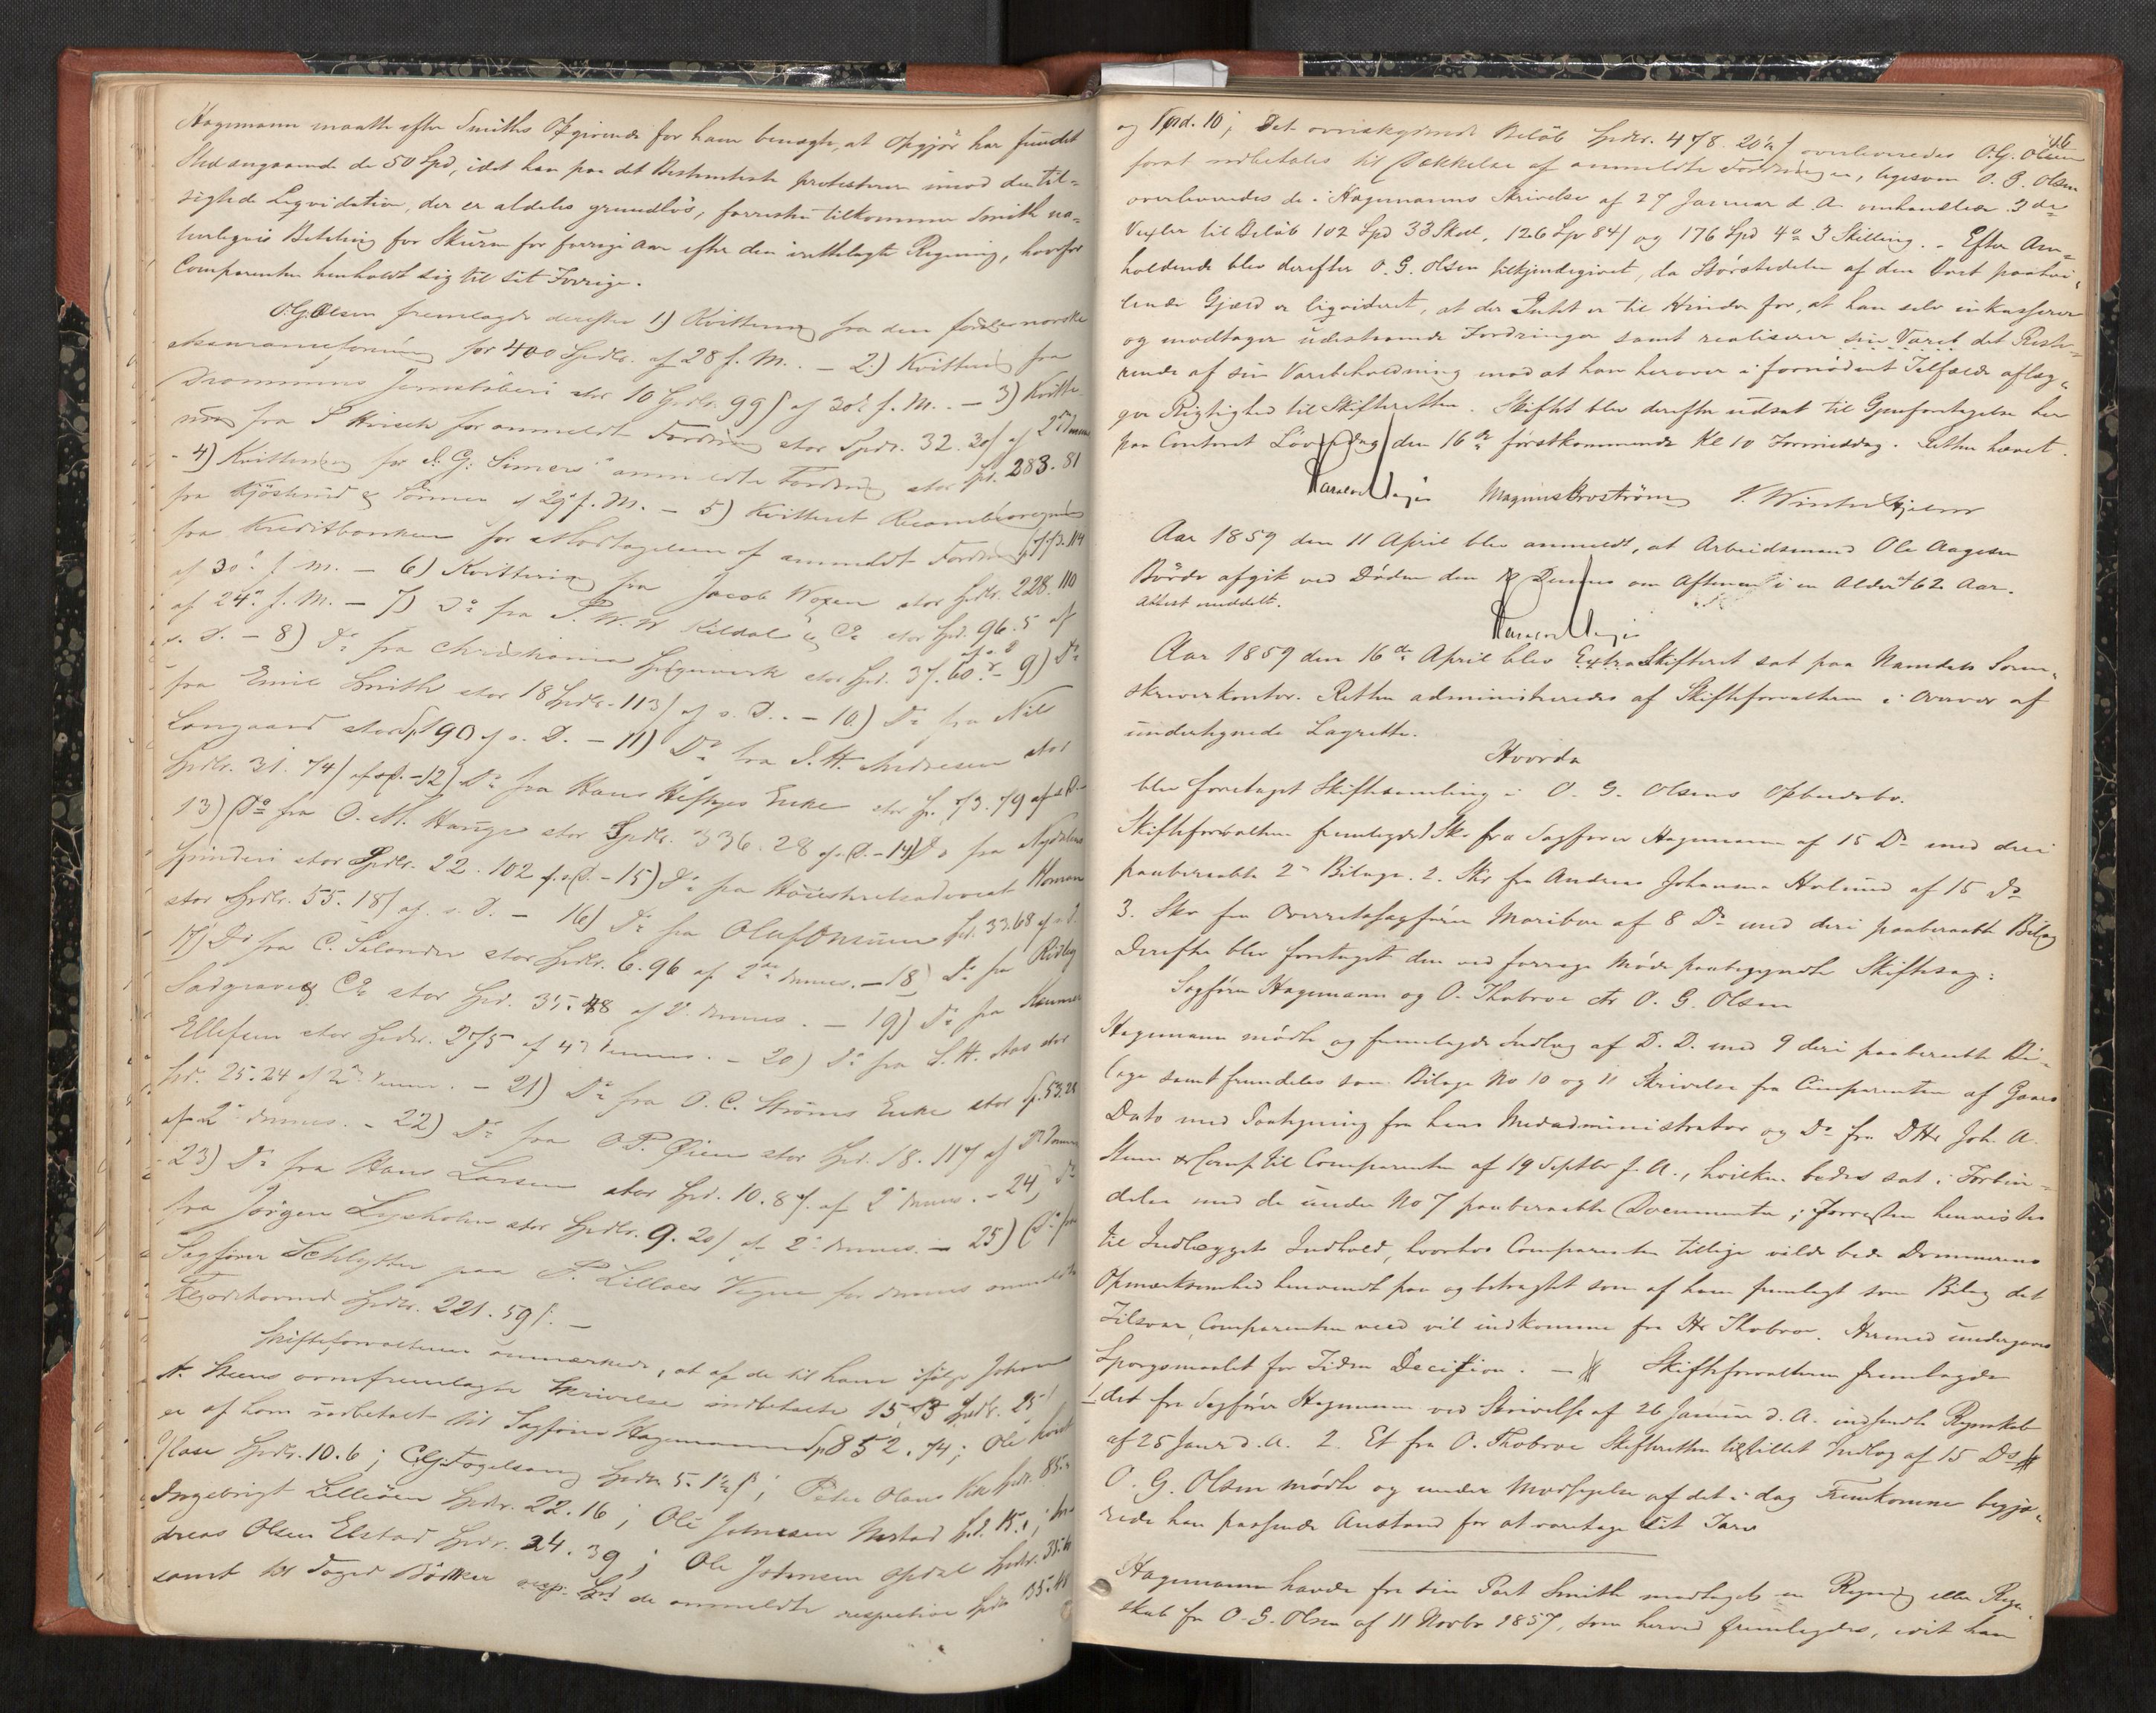 Hagemann maatte efter Smiths Opgivende for ham benegte, at Opgjør har fundet
Sted angaaende de 50 Spd, idet han paa det Bestemteste protesterer imod den til-
sigtede Liqvidation, der er aldeles grundløs, forresten tilkommer Smith na-
turligvis Betaling for Skuren for forrige Aar efter den irettelagte Regning, hvorfor
Comparenten henholdt sig til sit Forrige.
O. G. Olsen fremlagde derefter 1) Kvittering fra den norske
Assuranceforening for 400 Spdlr. af 28 f. M. – 2.) Kvittering fra
Drammens Jernstøberi stor 10 Spdlr. 99 ß af 30 f. M. – 3) Kvitte-
ring fra S Hirsch for anmeldt Fordring stor Spdr. 32. 30 ß af 2 dennes
- 4) Kvittering for anmeldte Fordring stor Spd. 283. 81
fra & Sønner af 29 f. M. – 5) Kvitteret
fra Kreditbanken for Modtagelsen af anmeldt Fordring
af 30 f. M. – 6) Kvittering fra Jacob Woxen stor Spdlr. 228. 110
af 24 f. M. – 7) Do fra P. W. W Kildal & Co stor Spd. 96. 5 af
s. D. – 8) Do fra Christiania Spigerverk stor Spd. 37. 60 – 9) Do
fra Emil Smith stor 18 Spdlr. 113 ß af s. D. – 10) Do fra Nils
Langaard stor Spd 90 af s. D. – 11) Do fra J. H. Andresen stor
Spdlr. 31. 74 ß af s. D. – 12) Do fra Hans Heftyes Enke stor Sp. 73. 79 af s. D.
13) Do fra O. M. Hauge stor Spdlr. 336. 28 af s. D. – 14) Do fra Nydalens
Spinderi stor Spdlr. 22. 102 af s. D. – 15) Do fra Høiesteretsadvocat Homan
stor Spdlr. 55. 18 ß af s. D. – 16) Do fra Olaf Spd. 33. 68 af s. D.
17) Do fra C. Selander stor Spdlr. 6. 96 af 2 dennes. – 18) Do fra Ridley
Sadgrave & Co stor Spd. 35. 48 af 2 dennes. – 19) Do fra
Ellefsen stor Spdlr. 275 af 4 dennes. – 20) Do fra S. H. stor
Spd. 25. 24 af 2 dennes. – 21) Do fra O. C. Strøms Enke stor Sp. 53. 24
af 2 dennes. – 22) Do fra O P. Øien stor Spd. 18. 117 af 2 dennes
23) Do fra Hans Larsen stor Spd. 10. 8 ß. af 2 dennes. – 24) Do
fra Jørgen Lysholm stor Spdlr. 9. 20 ß af 2 dennes. – 25) Do fra
Sagfører Schlytter paa P. Lilloes Vegne for dennes anmeldte
Tilgodehavende Spdlr. 221. 59 ß. –
Skifteforvalteren anmærkede, at af de til ham ifølge Johan
A. Steens ovenfremlagte Skrivelse indbetalte Spdlr.
er af ham udbetalt til Sagfører Hagemann Spd 852. 74; Ole
Spdlr. 10. 6; C. G. Fogelsang Spdr 5. 1½ ß; Peter Olaus Vik Spdr.
Ingebrigt Lilleøen Spdlr. 22. 16; Ole Johnsen Spd. 15. ;
dreas Olsen Elstad Spdr. 24. 39; Ole Johnsen Opdal Spdlr.
samt til Foged Bødtker de anmeldte respektive Spdr 135. 48
46
og Spd. 10; Det overskydende Beløb Spdr. 478. 20½ ß overleveredes O. G. Olsen
forat udbetales til Dækkelse af anmeldte Fordringer, ligesom O. G. Olsen
overleveredes de i Hagemanns Skrivelse af 27 Januar d. A. omhandlede 3de
Vexler til Beløb 102 Spd 33 Skill, 126 Spd 84 ß og 176 Spd 4 3 Skilling. – Efter An-
holdende blev derefter O. G. Olsen tilkjendegivet, da Størstedelen af den Boet paahvi-
lende Gjæld er liqvideret, at der Intet er til Hinder for, at han selv inkasserer
og modtager udestaaende Fordringer samt realiserer sin Vareb det Reste-
rende af sin Varebeholdning mod at han herover i fornødent Tilfælde aflæg-
ger Rigtighed til Skifteretten. Skiftet blev derefter udsat til Gjenforetagelse her
paa Contoret Løverdag den 16de førstkommende Kl 10 Formiddag. Retten hævet.
Magnus Broström V. Winter Hjelm
Aar 1859 den 11 April blev anmeldt, at Arbeidsmand Ole Aagesen
Børde afgik ved Døden den dennes om Aftenen i en Alder af 62 Aar.
Attest meddelt.
Aar 1859 den 16de April blev Extra Skifteret sat paa Namdals Soren-
skriverkontor. Retten administreredes af Skifteforvalteren i Overvær af
undertegnede Lagrette.
Hvorda
blev foretaget Skiftesamling i O. G. Olsens Opbudsbo.
Skifteforvalteren fremlagde 1 Skr fra Sagfører Hagemann af 15 Ds med deri
paaberaabte 2 Bilage. 2. Skr fra Andreas Johannes Havlund af 15 Ds
3. Skr fra Overretssagfører Maribo af 8 Ds med deri paaberaabte Bilag
Derefter blev foretaget den ved forrige Møde paabegyndte Skiftesag:
Sagfører Hagemann og O. Thobroe ctr O. G. Olsen
Hagemann mødte og fremlagde Indlæg af D. D. med 9 deri paaberaabte Bi-
lage samt fremdeles som Bilage No 10 og 11 Skrivelse fra Comparenten af Gaars
Dato med Paategning fra hans Medadministrator og Do fra DHr Joh. A.
Steen & Comp til Comparenten af 19 Septbr f. A., hvilken bedes sat i Forbin-
delse med de under No 7 paaberaabte Documenter; Forresten henvistes
til Indlæggets Indhold, hvorhos Comparenten tillige vilde bede Dommerens
Opmærksomhed henvendt paa og betragtet som af ham fremlagt som Bilag det
Tilsvar, Comparenten veed vil indkomme fra Hr Thobroe. Hermed undergaves
Spørgsmaalet for Tiden Decision. – Skifteforvalteren fremlagde
1 det fra Sagfører Hagemann ved Skrivelse af 26 Januar d. A. indsendte Regnskab
af 25 Janr d. A. 2. Et fra O. Thobroe Skifteretten tilstillet Indlæg af 15 Ds
O. G. Olsen mødte og under Modsigelse af det i dag Fremkomne begjæ-
rede han passende Anstand for at varetage sit Tarv
Hagemann havde fra sin Part Smith modtaget en Regning eller Regn-
skab fra O. G. Olsen af 11 Novbr 1857, som herved fremlagdes, idet han